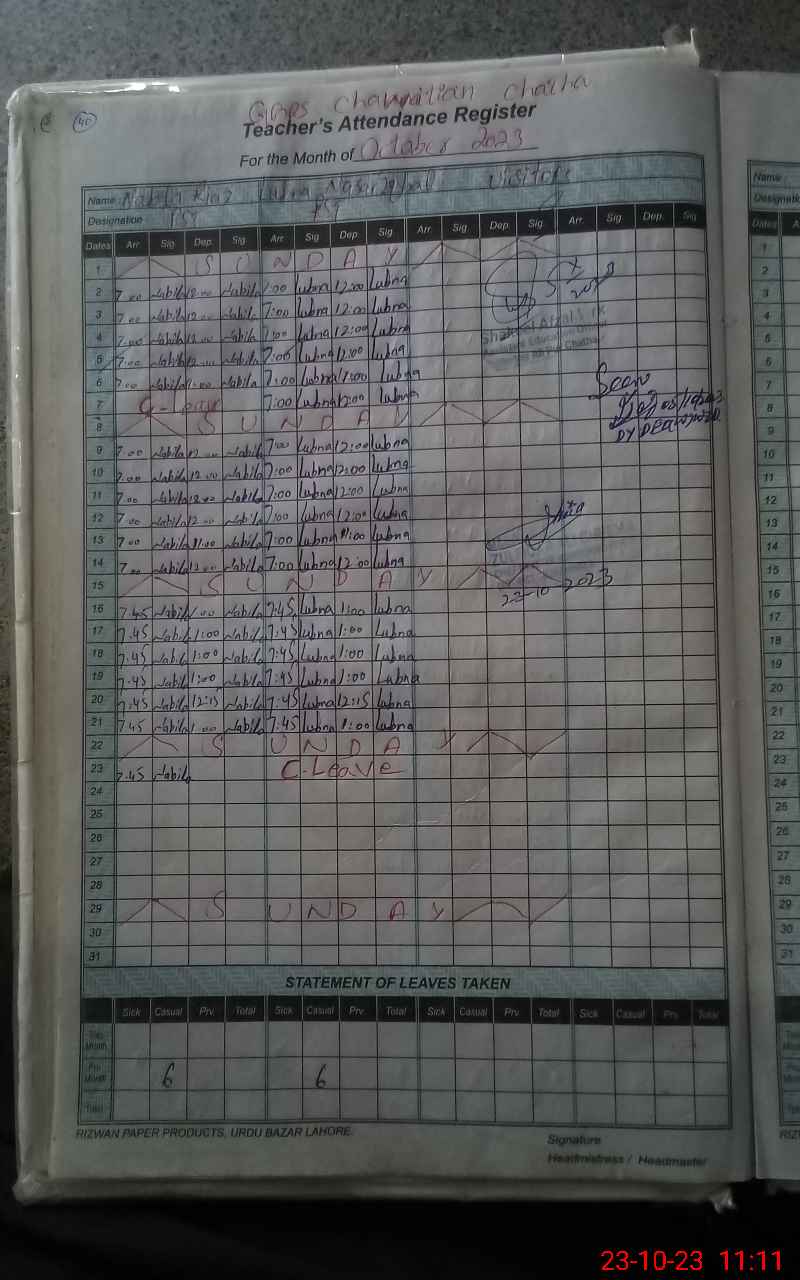 40
Teacher's Attendance Register
For the Month of October 2023
Name Nabila Riaz Lubna Visitors
Designation PST PST
Dates Arr. Sig Dep. Sig Arr. Sig Dep. Sig Arr. Sig Dep. Sig. Arr. Sig Dep. Sig
1 S U N D A Y
2 7.00 Nabila 12.00 Nabila 7:00 Lubna 12:00 Lubna
3 7.00 Nabila 12.00 Nabila 7:00 Lubna 12:00 Lubna
4 7.00 Nabila 12.00 Nabila 7:00 Lubna 12:00 Lubna
5 7.00 Nabila 12.00 Nabila 7:00 Lubna 12:00 Lubna
6 7.00 Nabila 11.00 Nabila 7:00 Lubna 11:00 Lubna
7 C-Leave 7:00 Lubna 12:00 Lubna
8 S U N D A Y
9 7.00 Nabila 12.00 Nabila 7:00 Lubna 12:00 Lubna
10 7.00 Nabila 12.00 Nabila 7:00 Lubna 12:00 Lubna
11 7.00 Nabila 12.00 Nabila 7:00 Lubna 12:00 Lubna
12 7.00 Nabila 12.00 Nabila 7:00 Lubna 12:00 Lubna
13 7.00 Nabila 11.00 Nabila 7:00 Lubna 11:00 Lubna
14 7.00 Nabila 12.00 Nabila 7:00 Lubna 12:00 Lubna
15 S U N D A Y
22-10-2023
16 7.45 Nabila 1.00 Nabila 7:45 Lubna 1:00 Lubna
17 7.45 Nabila 1:00 Nabila 7:45 Lubna 1:00 Lubna
18 7.45 Nabila 1:00 Nabila 7:45 Lubna 1:00 Lubna
19 7.45 Nabila 1:00 Nabila 7:45 Lubna 1:00 Lubna
20 7.45 Nabila 12:15 Nabila 7:45 Lubna 12:15 Lubna
21 7.45 Nabila 1.00 Nabila 7:45 Lubna 1:00 Lubna
22 S U N D A Y
23 7.45 Nabila C-Leave
24
25
26
27
28
29 S U N D A Y
30
31
STATEMENT OF LEAVES TAKEN
Sick Casual Prv. Total Sick Casual Prv. Total Sick Casual Prv. Total Sick Casual Prv. Total
This Month
Pre Month 6 6
Total
RIZWAN PAPER PRODUCTS, URDU BAZAR LAHORE.
Signature
Headmistress / Headmaster
Name
Dates
1
2
3
4
5
6
7
8
9
10
11
12
13
14
15
16
17
18
19
20
21
22
23
24
25
26
27
28
29
30
31
23-10-23 11:11